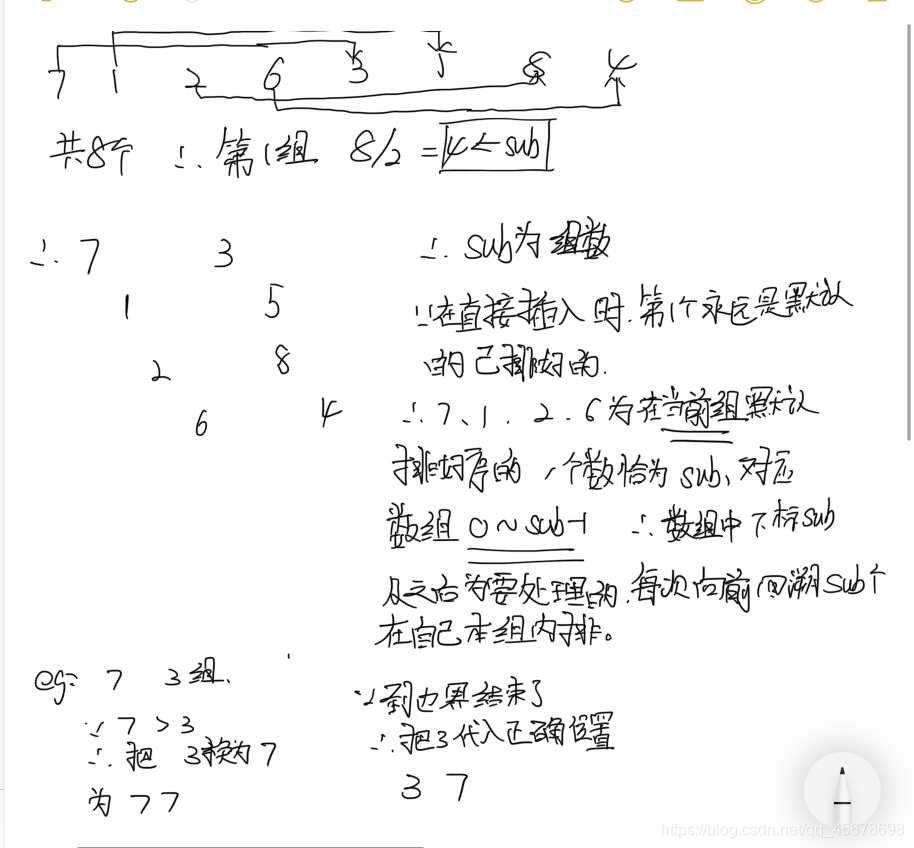 7 1 2 6 3 5 8 4
共8个 ∴ 第1组 8/2 = 4 ← sub
∴ 7 3
1 5
2 8
6 4
∴ sub为 组数
∵在直接插入时.第1个永远是默认
的已排好的.
∴ 7、1、2、6为在当前组默认
排好序的,个数恰为 sub,对应
数组 0~sub-1 ∴数组中下标sub
及之后为要处理的,每次向前回溯sub个
在自己本组内排。
eg: 7 3组.
∵ 7 > 3
∴ 把 3换为7
为 7 7
∵到边界结束了
∴把3代入正确位置
3 7
https://blog.csdn.net/qq_45678698